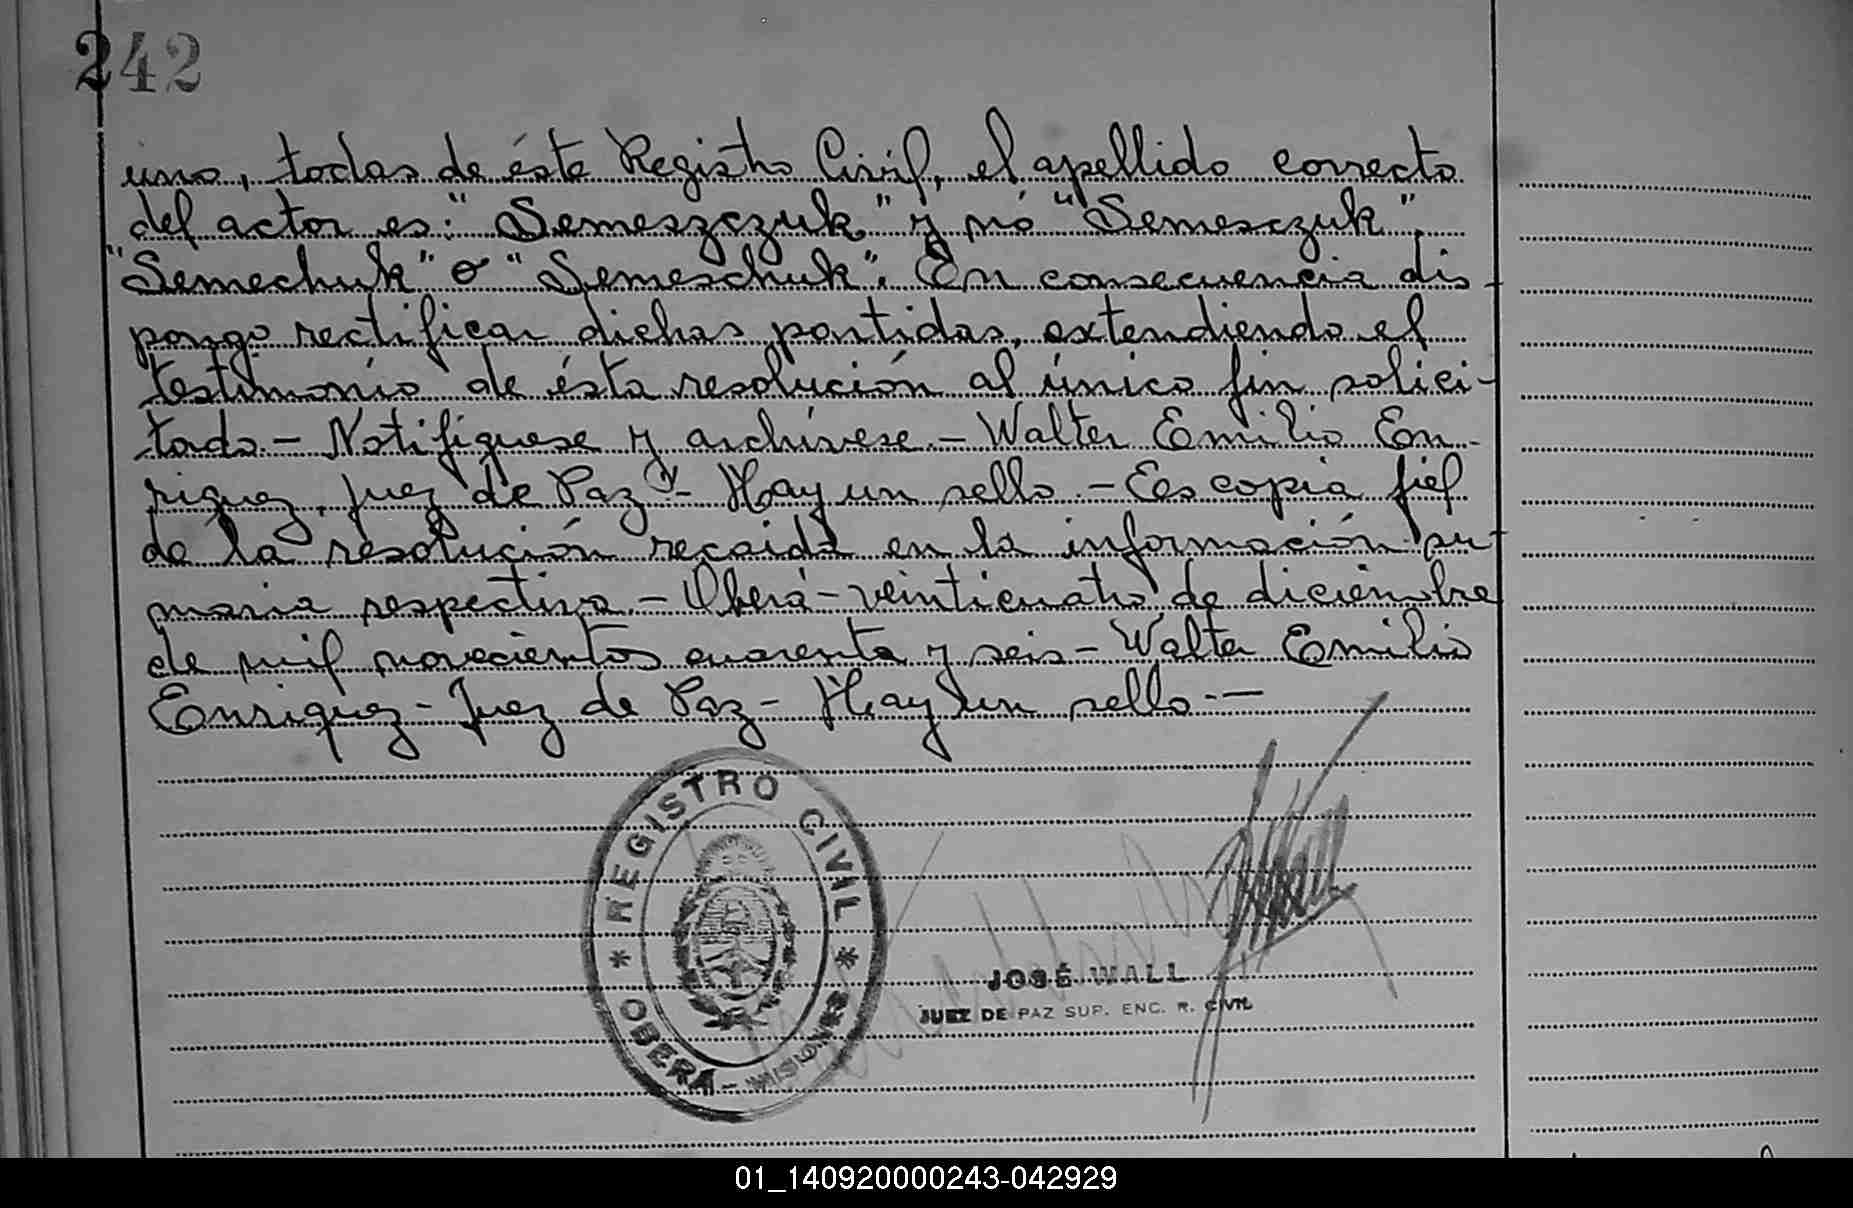 242
uno, todas de ésta Registro Civil, el apellido correcto
del actor es: "Semeszczuk" y nó "Semesczuk",
"Semechuk" o "Semeschuk". En consecuencia dis-
pongo rectificar dichas partidas, extendiendo el
testimonio de ésta resolución al único fin solici-
tado.- Notifíquese y archívese.- Walter Emilio En-
riquez, Juez de Paz - Hay un sello.- Es copia fiel
de la resolución recaida en la información su-
maria respectiva.- Oberá - veinticuatro de diciembre
de mil novecientos cuarenta y seis - Walter Emilio
Enriquez - Juez de Paz - Hay un sello.-
REGISTRO CIVIL
* OBERÁ - MISIONES *
JOSÉ WALL
JUEZ DE PAZ SUP. ENC. R. CIVIL
01_140920000243-042929